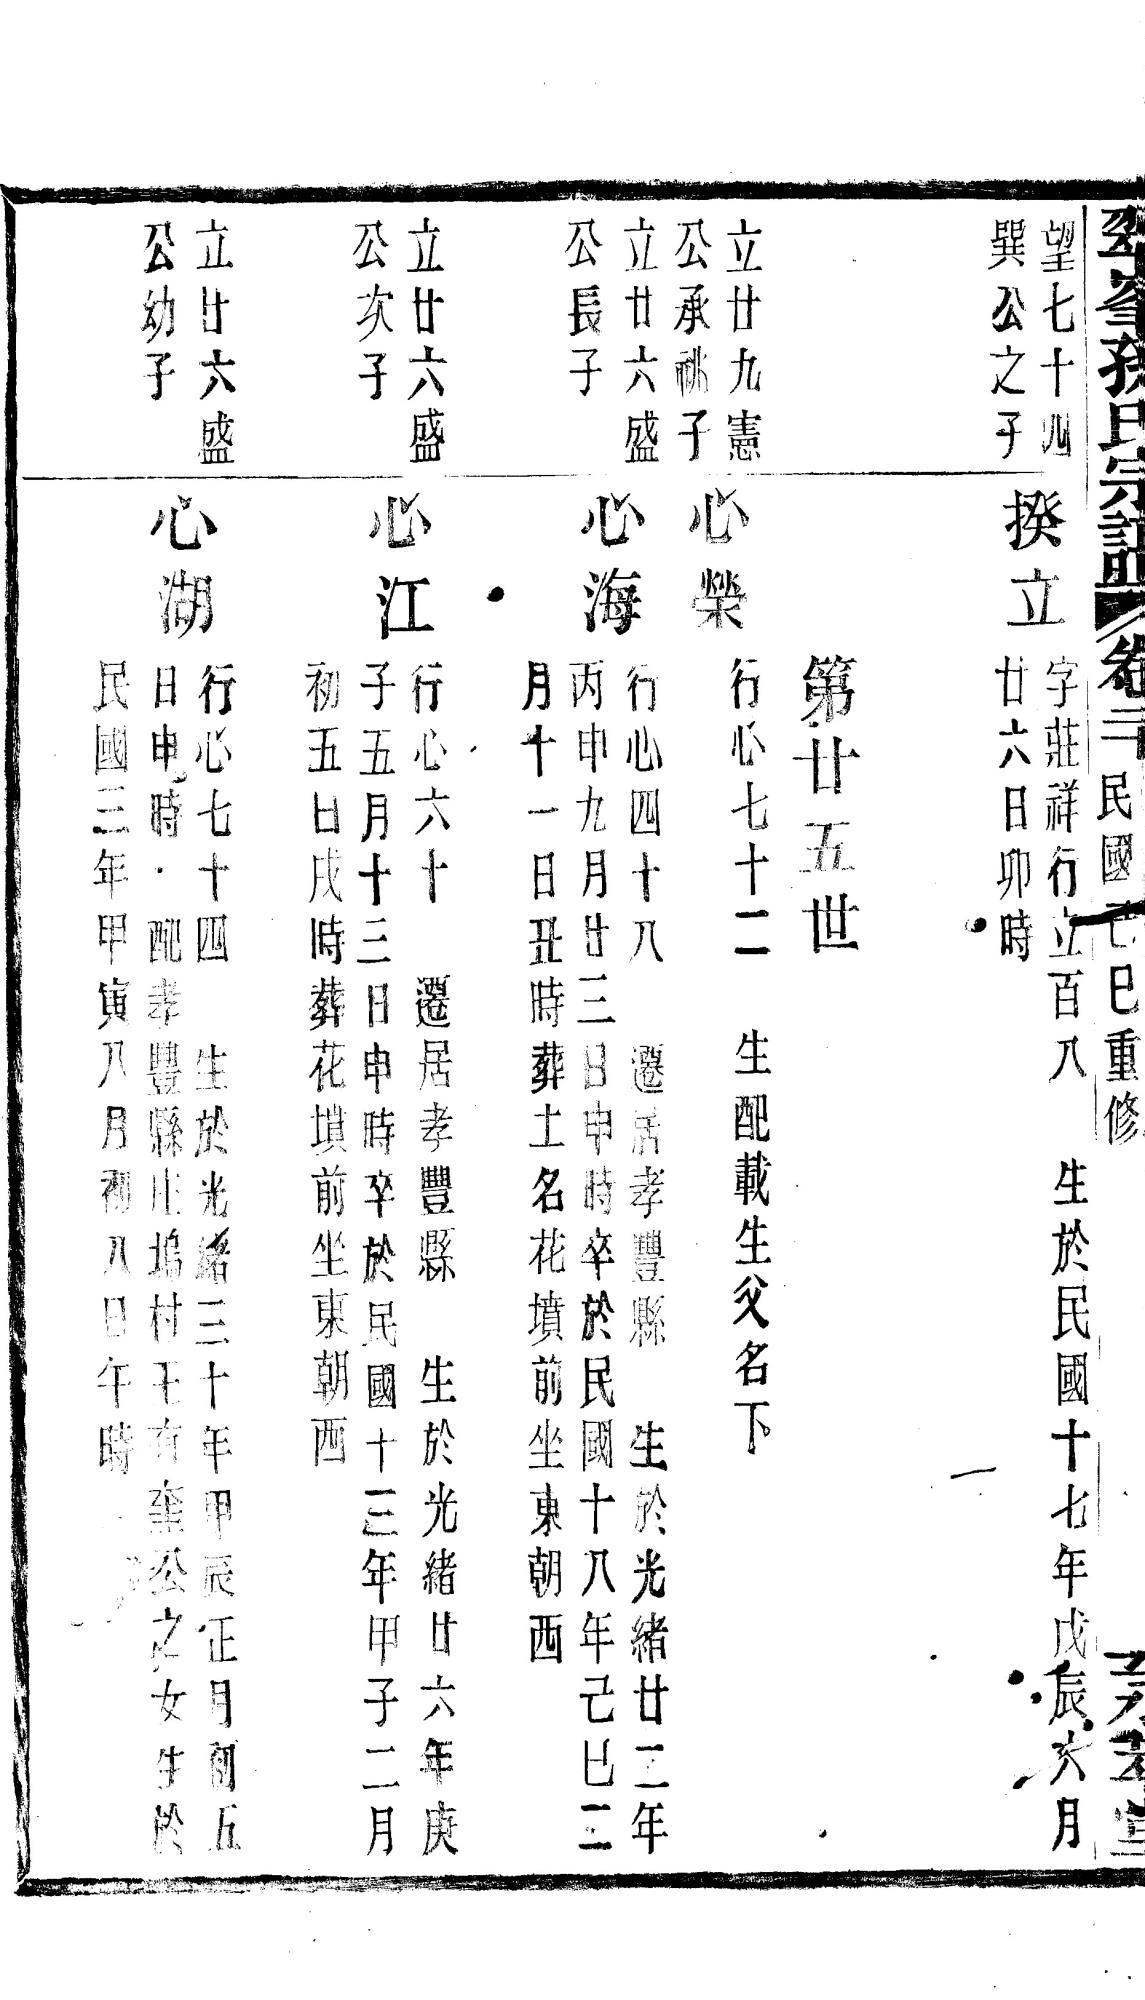 翠峯孫氏宗譜 卷二 民國己巳重修
望七十四
巽公之子
揆立
字莊祥行立百八 生於民國十七年戊辰六月
廿六日卯時
第廿五世
立廿九憲
公承祧子
心榮
行心七十二 生配載生父名下
立廿六盛
公長子
心海
行心四十八 遷居孝豐縣 生於光緒廿二年
丙申九月廿三日申時卒於民國十八年己巳二
月十一日丑時葬土名花墳前坐東朝西
立廿六盛
公次子
心江
行心六十 遷居孝豐縣 生於光緒廿六年庚
子五月十三日申時卒於民國十三年甲子二月
初五日戌時葬花墳前坐東朝西
立廿六盛
公幼子
心湖
行心七十四 生於光緒三十年甲辰正月初五
日申時 配孝豐縣庄塢村王有公之女生於
民國三年甲寅八月初八日午時